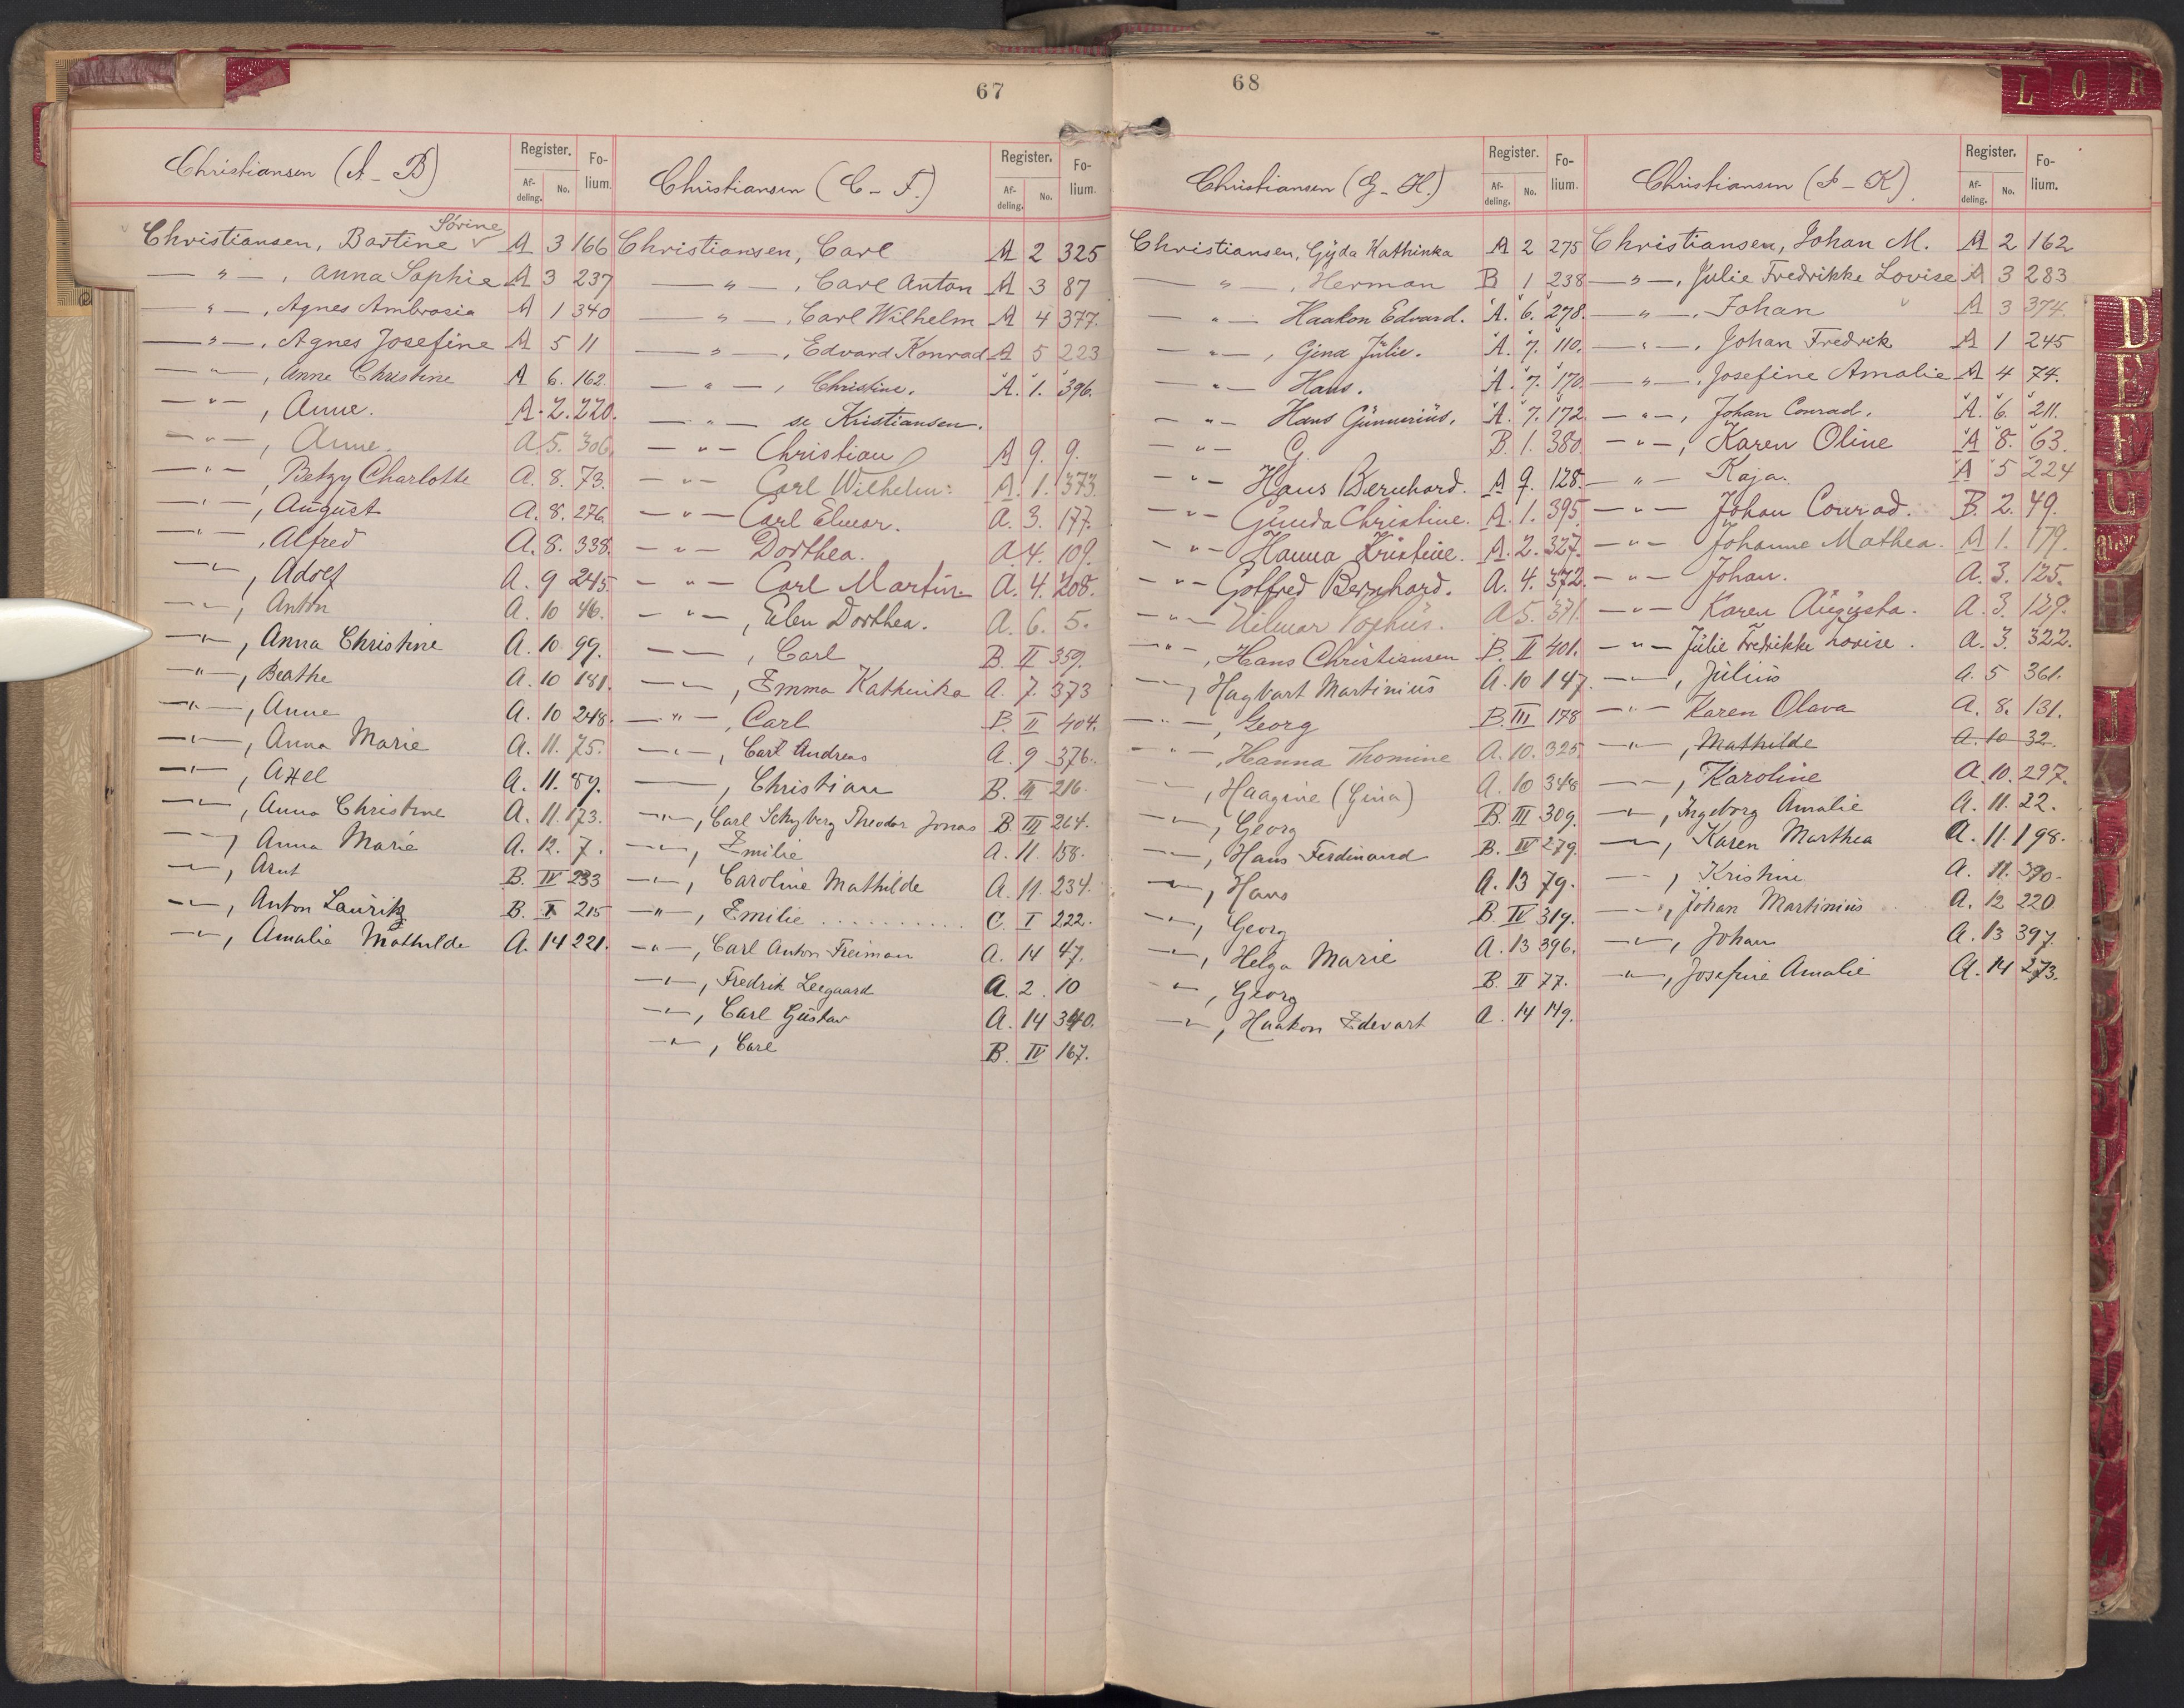 67
Christiansen (A - B)
Register.
Fo-
lium.
Af-
deling.
No.
Sørine
Christiansen, Bartine A 3 166
— " — , Anna Sophie A 3 237
— " — , Agnes Ambrosia A 1 340
— " — , Agnes Josefine A 5 11
— " — , Anne Christine A 6. 162
— " — , Anne. A. 2. 220.
— " — , Anne. A 5. 306.
— " — , Betzy Charlotte A. 8. 73.
— " — , August A. 8. 276.
— " — , Alfred A. 8. 338.
— " — , Adolf A. 9 245.
— " — , Anton A. 10 46.
— " — , Anna Christine A. 10 99.
— " — , Beathe A. 10 181.
— " — , Anne A. 10 248.
— " — , Anna Marie A. 11. 75.
— " — , Axel A. 11. 89.
— " — , Anna Christine A. 11. 173.
— " — , Anna Marie A. 12. 7.
— " — , Arnt B. IV 233
— " — , Anton Lauritz B. 215
— " — , Amalie Mathilde A. 14 221.
Christiansen (C - F.)
Register.
Fo-
lium.
Af-
deling.
No.
Christiansen, Carl A 2 325
— " — , Carl Anton A 3 87
— " — , Carl Wilhelm A 4 377.
— " — , Edvard Konrad A 5 223
— " — , Christine. A. 1. 396.
— " — se Kristiansen.
— " — Christian A 9. 9.
— " — Carl Wilhelm. A. 1. 373.
— " — Carl Elmar. A. 3. 177.
— " — Dorthea. A. 4. 109.
— " — Carl Martin A. 4. 208.
— " — , Elen Dorthea. A. 6. 5.
— " — , Carl B. II 359.
— " — , Emma Kathinka A. 7. 373
— " — , Carl B. II 404.
— " — , Carl Andreas A. 9 376.
— " — , Christian B. III 216.
— " — , Carl Schyberg Theodor Jonas B. III 264.
— " — , Emilie A. 11. 158.
— " — , Caroline Mathilde A. 11. 234.
— " — , Emilie . . . . . . . . . C. I 222.
— " — , Carl Anton Freiman A. 14 47.
— " — , Fredrik Leegaard A. 2. 10
— " — , Carl Gustav A. 14 340.
— " — , Carl B. IV 167.
68
Christiansen (G - H.)
Register.
Fo-
lium.
Af-
deling.
No.
Christiansen, Gyda Kathinka A 2 275
— " — , Herman B 1 238
— " — Haakon Edvard. A. 6. 278.
— " — , Gina Julie. A. 7. 110.
— " — Hans. A. 7. 170
— " — Hans Gunnerius. A. 7. 172
— " — G. B. 1. 380.
— " — Hans Bernhard. A 9. 128.
— " — Gunda Christine. A. 1. 395.
— " — Hanna Kristine. A. 2. 327.
— " — Gotfred Bernhard. A. 4. 372.
— " — Hilmar Sophus. A 5. 371.
— " — , Hans Christiansen B. II 401.
— " — , Hagbart Martinius A. 10 147.
— " — , Georg B. III 178
— " — , Hanna Thomine A. 10. 325.
— " — , Haagine (Gina) A. 10 348
— " — , Georg B. III 309.
— " — , Hans Ferdinand B. IV 279.
— " — , Hans A. 13 79.
— " — , Georg B. IV 319.
— " — , Helga Marie A. 13 396.
— " — , Georg B. II 77.
— " — , Haakon Edevart A. 14 149.
L O R
Christiansen (I - K)
Register.
Fo-
lium.
Af-
deling.
No.
Christiansen, Johan M. A 2 162
— " — , Julie Fredrikke Lovise A 3 283
— " — , Johan A 3 374.
— " — , Johan Fredrik A 1 245
— " — , Josefine Amalie A 4 74.
— " — , Johan Conrad. A. 6. 211.
— " — , Karen Oline A 8. 63.
— " — Kaja. A 5 224
— " — Johan Conrad. B. 2. 49.
— " — Johanne Mathea. A 1. 179.
— " — Johan. A. 3. 125.
— " — Karen Augusta. A. 3. 129.
— " — Julie Fredrikke Lovise. A. 3. 322.
— " — , Julius A. 5 361.
— " — Karen Olava A. 8. 131.
— " — , Mathilde A. 10 32.
— " — , Karoline A. 10. 297.
— " — , Ingeborg Amalie A. 11. 22.
— " — , Karen Marthea A. 11. 198.
— " — , Kristine A. 11. 390.
— " — , Johan Martinius A. 12 220
— " — , Johan A. 13 397.
— " — , Josefine Amalie A. 14 273.
D
E
F
G
J
K